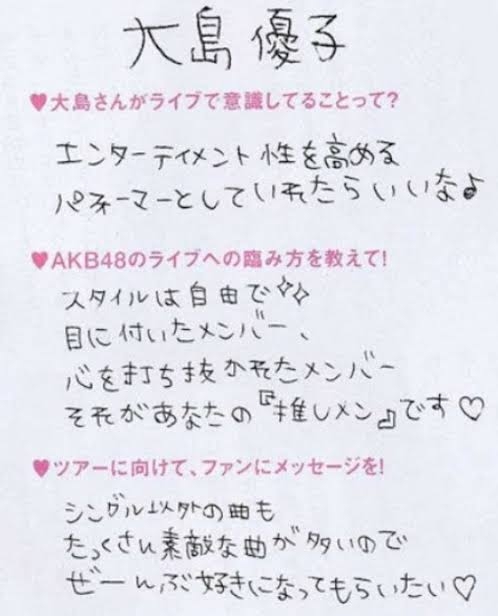 大島優子
♥大島さんがライブで意識してることって?
エンターテイメント性を高める
パフォーマーとしていれたらいいな♪
♥AKB48のライブへの臨み方を教えて!
スタイルは自由で✧✧
目に付いたメンバー、
心を打ち抜かれたメンバー
それがあなたの『推しメン』です♡
♥ツアーに向けて、ファンにメッセージを!
シングル以外の曲も
たっくさん素敵な曲が多いので
ぜーんぶ好きになってもらいたい♡